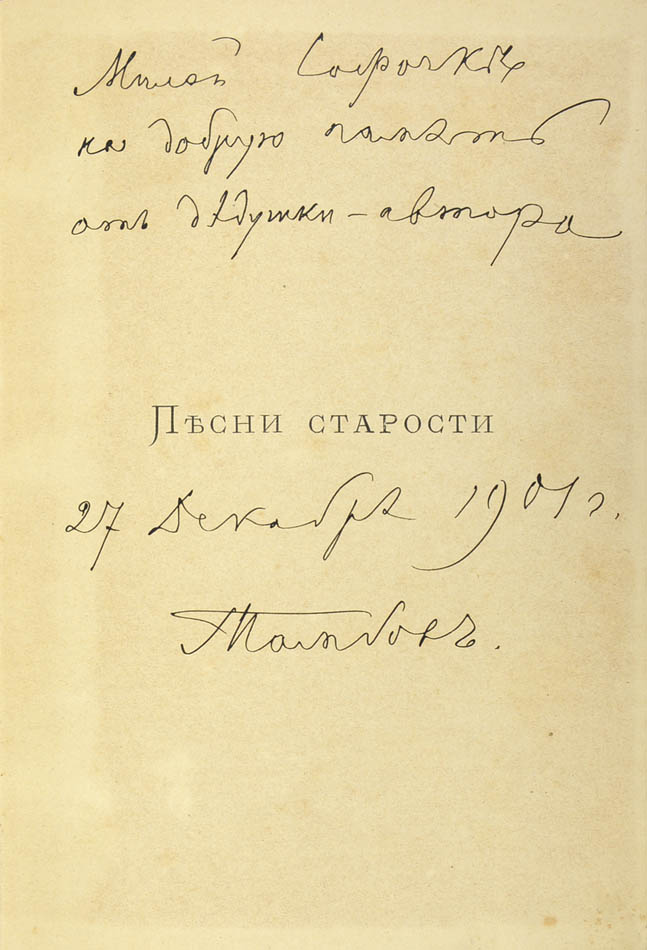 Милой Софочкѣ
на добрую память
отъ дѣдушки – автора
Пѣсни старости
27 Декабря 1901 г.
Тамбовъ.